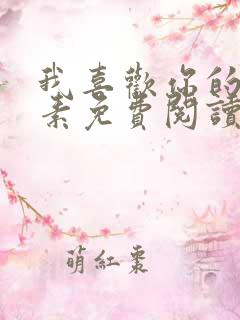 我喜歡你的
素免費閱讀
萌紅棗